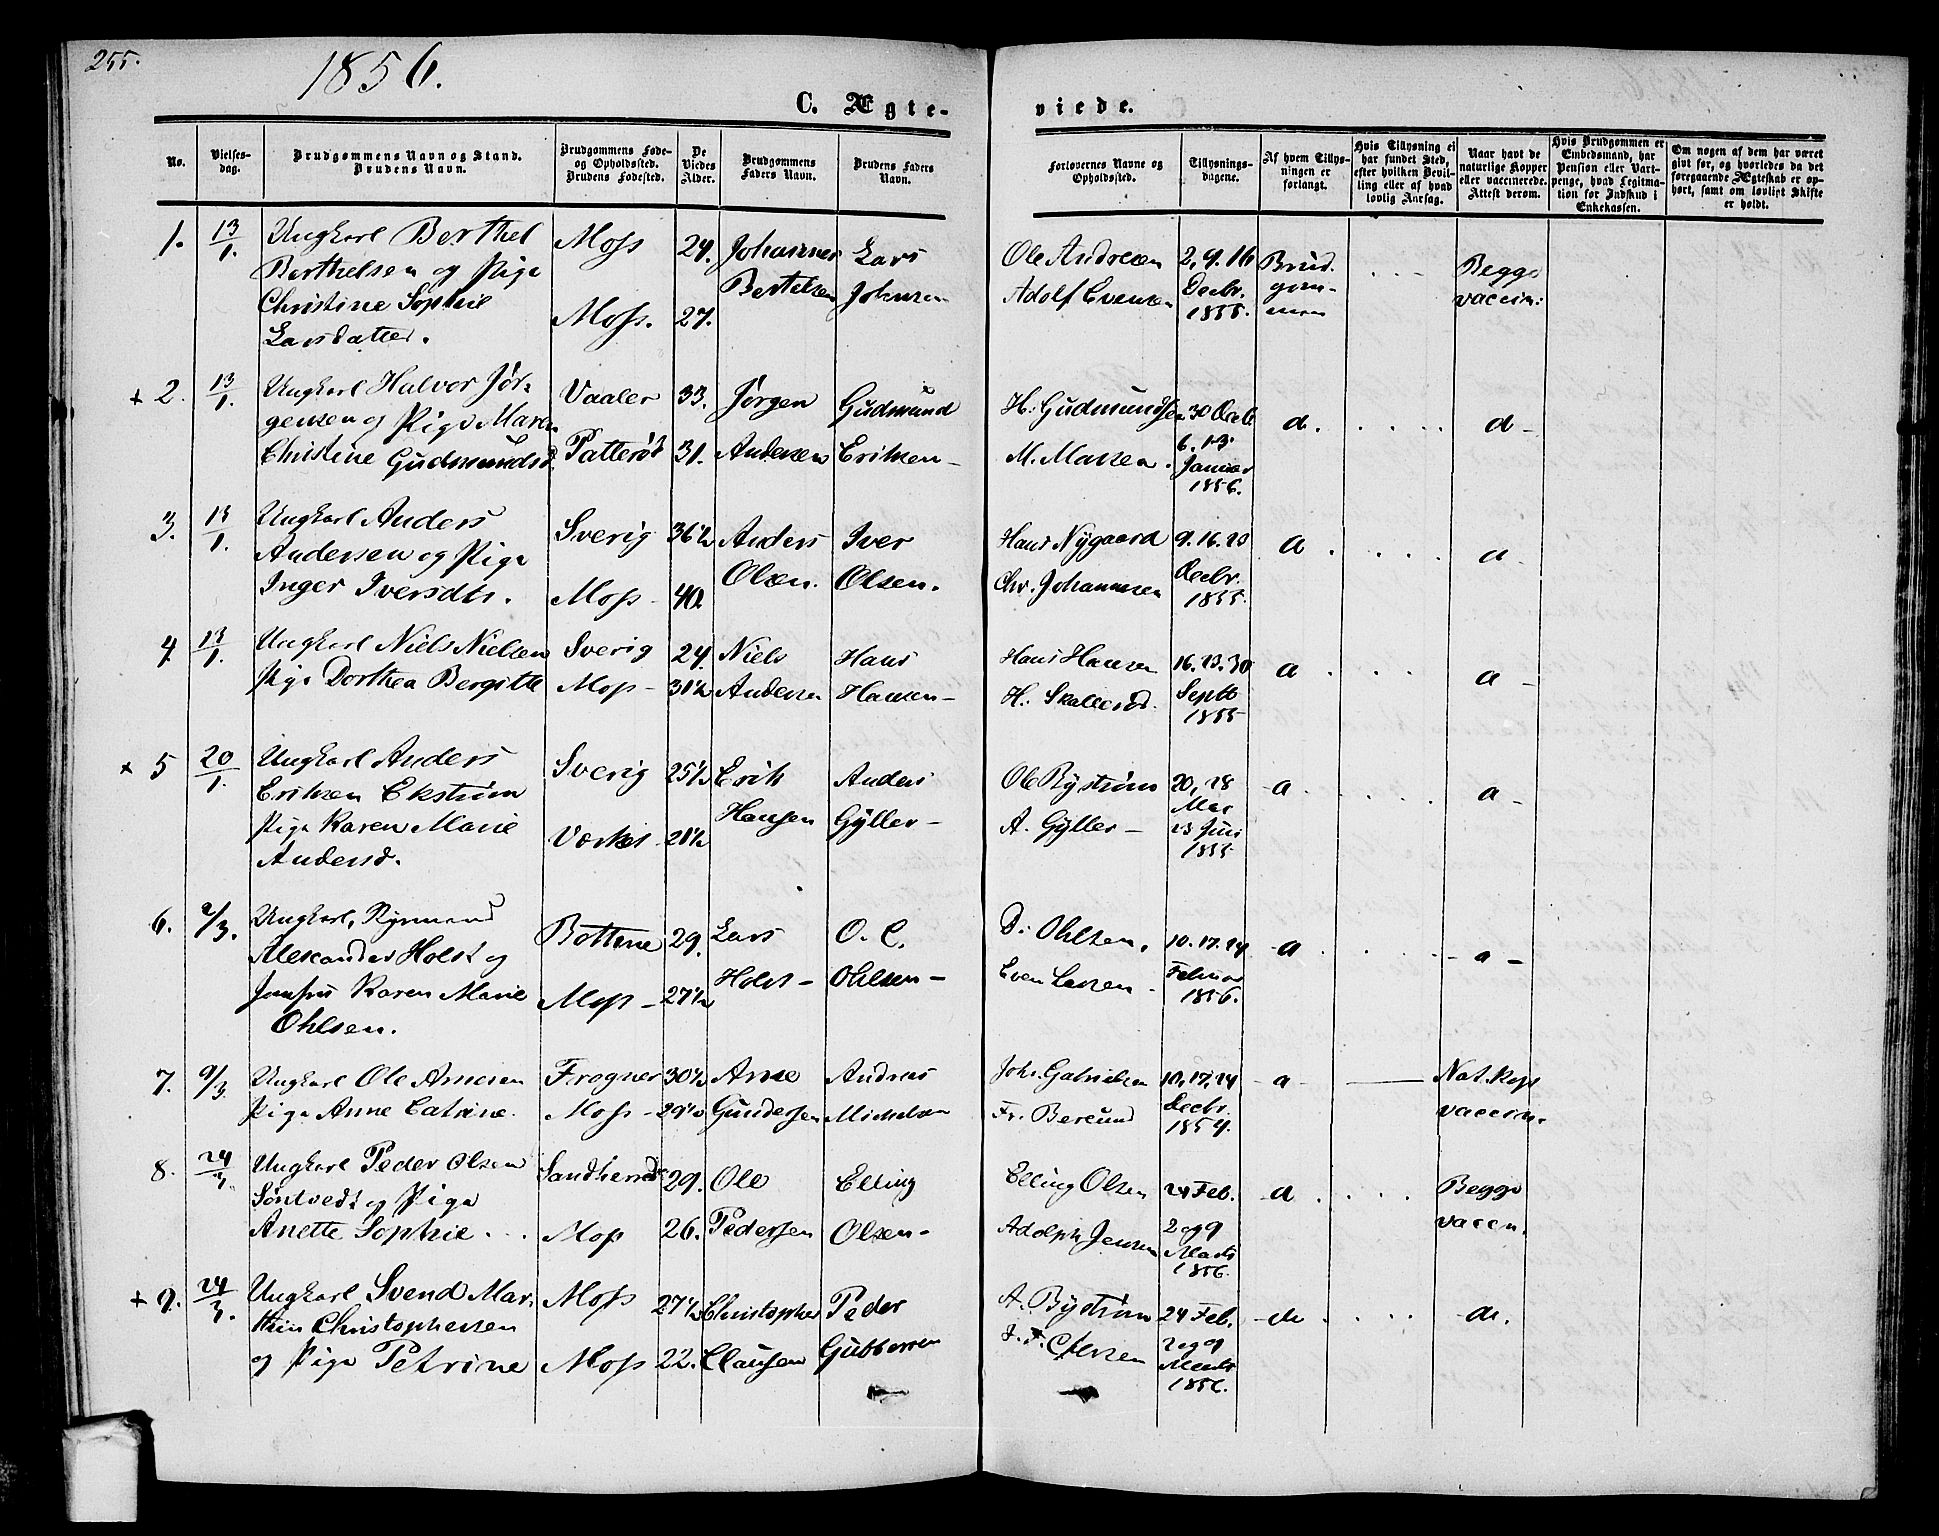 255.
1856.
C. Ægte-
viede.
No.
Vielses-
dag.
Brudgommens Navn og Stand.
Brudens Navn.
Brudgommens Føde-
og Opholdssted.
Brudens Fødested.
De
Viedes
Alder.
Brudgommens
Faders Navn.
Brudens Faders
Navn.
Forlovernes Navne og
Opholdssted.
Tillysnings-
dagene.
Af hvem Tillys-
ningen er
forlangt.
Hvis Tillysning ei
har fundet Sted,
efter hvilken Bevil-
ling eller af hvad
lovlig Aarsag.
Naar havt de
naturlige Kopper
eller vaccinerede.
Attest derom.
Hvis Brudgommen er
Embedsmand, har
Pension eller Vart-
penge, hvad Legitima-
tion for Indskud i
Enkekassen.
Om nogen af dem har været
gift før, og hvorledes da det
foregaaende Ægteskab er op-
hørt, samt om lovligt Skifte
er holdt.
1. 13/1. Ungkarl Berthel
Berthelsen og Pige
Christine Sophie
Larsdatter.
Moss
Moss.
24.
27.
Johannes
Bertelsen
Lars
Johnsen
Ole Andresen
Adolf Evensen
2, 9. 16
Decbr.
1855.
Brud-
gom-
men
Begge
vaccin:
+ 2. 13/1. Ungkarl Halvor Jør-
gensen og Pige Maren
Christine Gudmundsd.
Vaaler
Patterød
33.
31.
Jørgen
Andersen
Gudmund
Eriksen -
H. Gudmundsen
M. Massen.
30 Decb
6. 13
Januar
1856.
d.
d -
3. 13/1. Ungkarl Anders
Andersen og Pige
Inger Iversdtr.
Sverig
Moss -
36½
40.
Anders
Olsen.
Iver
Olsen.
Hans Nygaard
Chr. Johannesen
9. 16. 23
Decbr.
1855.
d.
d.
4. 13/1. Ungkarl Niels Nielsen
Pige Dorthea Bergitte
Sverig
Moss -
24.
31½
Niels
Andersen
Hans
Hansen -
Hans Hansen
H. Skallerød.
16. 23. 30
Septb
1855
d.
d -
+ 5 20/1. Ungkarl Anders
Eriksen Ekstrøm
Pige Karen Marie
Andersd.
Sverig
Værket -
25½
21½
Erik
Hansen
Anders
Gÿller -
Ole Bystrøm
A. Gÿller -
20, 28
Mai
23 Juni
1855
d.
d -
6. 2/3. Ungkarl,
Alexander Holst og
Jomfru Karen Marie
Ohlsen.
Bottene
Moss -
29.
27½
Lars
Holst -
O. C.
Ohlsen -
D. Ohlsen.
Even Larsen -
10. 17. 24
Februar
1856.
d
- d -
7. 9/3 Ungkarl Ole Arnesen
Pige Anne Catrine.
Frogner
Moss -
30½
29½
Arne
Gundersen
Andreas
Michelsen
Joh. Gabrielsen
Fr. Berlund
10, 17, 24
Decbr.
1854.
- d -
Nat. Kop.
vaccin.
8. 24/3. Ungkarl Peder Olsen
Søntvedt og Pige
Anette Sophie . . .
Sandherred
Moss
29.
26.
Ole
Pedersen
Elling
Olsen -
Elling Olsen
Adolph Jensen
24 Feb.
2 og 9
Marts
1856.
- d.
Begge
vaccin.
+ 9. 24/3. Ungkarl Svend Mar-
thin Christophersen
og Pige Petrine
Moss
Moss
27½
22.
Christopher
Clausen
Peder
Gubbersen
A. Bystrøm
24 Feb.
2 og 9
Marts
1856.
- do
do.